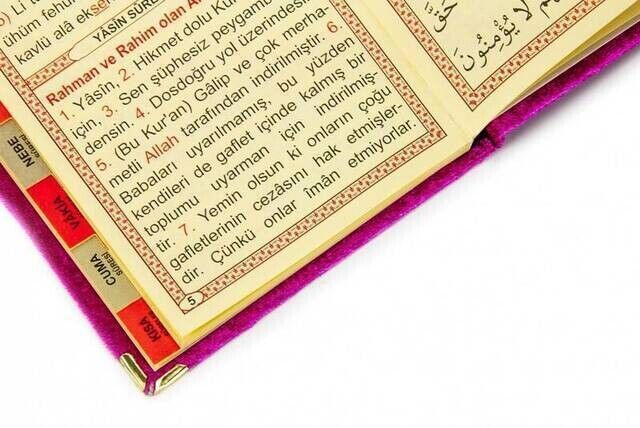 ö) Li t
ühüm fehüm
kavlü alâ ekser
YÂSİN SÛR
Rahman ve Rahim olan A
1. Yâsîn, 2. Hikmet dolu Kur
için, 3. Sen şüphesiz peygam
densin. 4. Dosdoğru yol üzerindesi
5. (Bu Kur'an) Gâlip ve çok merha-
metli Allah tarafından indirilmiştir. 6.
Babaları uyarılmamış, bu yüzden
kendileri de gaflet içinde kalmış bir
toplumu uyarman için indirilmiş-
tir. 7. Yemin olsun ki onların çoğu
gafletlerinin cezasını hak etmişler-
dir. Çünkü onlar îmân etmiyorlar.
5
NEBE
VÂKIA
CUMA
SÛRESİ
KISA
حَقَّ
لَا يُؤْمِنُونَ